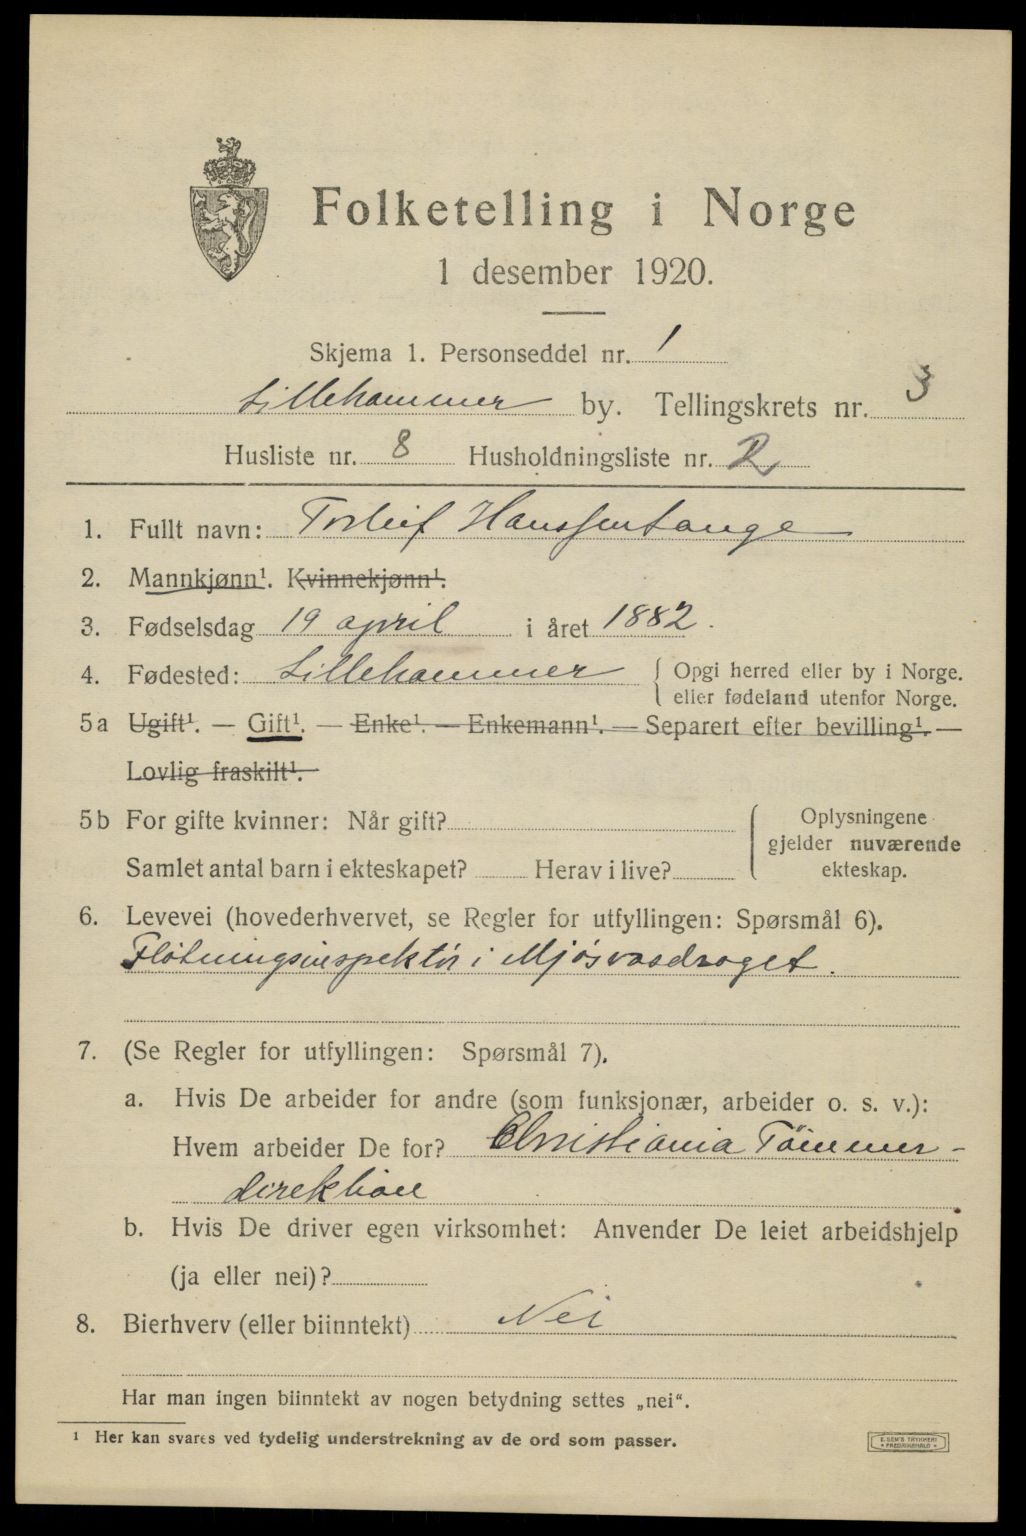 Folketelling i Norge
1 desember 1920.
Skjema 1. Personseddel nr. 1
Lillehammer by. Tellingskrets nr. 3
Husliste nr. 8 Husholdningsliste nr. 2
1. Fullt navn: Torleif Hanssen Lange
2. Mannkjønn¹. Kvinnekjønn¹.
3. Fødselsdag 19 april i året 1882.
4. Fødested: Lillehammer { Opgi herred eller by i Norge.
eller fødeland utenfor Norge.
5a Ugift¹. — Gift¹. — Enke¹. — Enkemann¹. — Separert efter bevilling¹. —
Lovlig fraskilt¹.
5b For gifte kvinner: Når gift?
Samlet antal barn i ekteskapet? Herav i live?
Oplysningene
gjelder nuværende
ekteskap.
6. Levevei (hovederhvervet, se Regler for utfyllingen: Spørsmål 6).
Fløtningsinspektør i Mjøsvasdraget.
7. (Se Regler for utfyllingen: Spørsmål 7).
a. Hvis De arbeider for andre (som funksjonær, arbeider o. s. v.):
Hvem arbeider De for? Christiania Tømmer-
direktion
b. Hvis De driver egen virksomhet: Anvender De leiet arbeidshjelp
(ja eller nei)?
8. Bierhverv (eller biinntekt) Nei
Har man ingen biinntekt av nogen betydning settes „nei“.
¹ Her kan svares ved tydelig understrekning av de ord som passer.
E. SEM'S TRYKKERI
FREDRIKSHALD